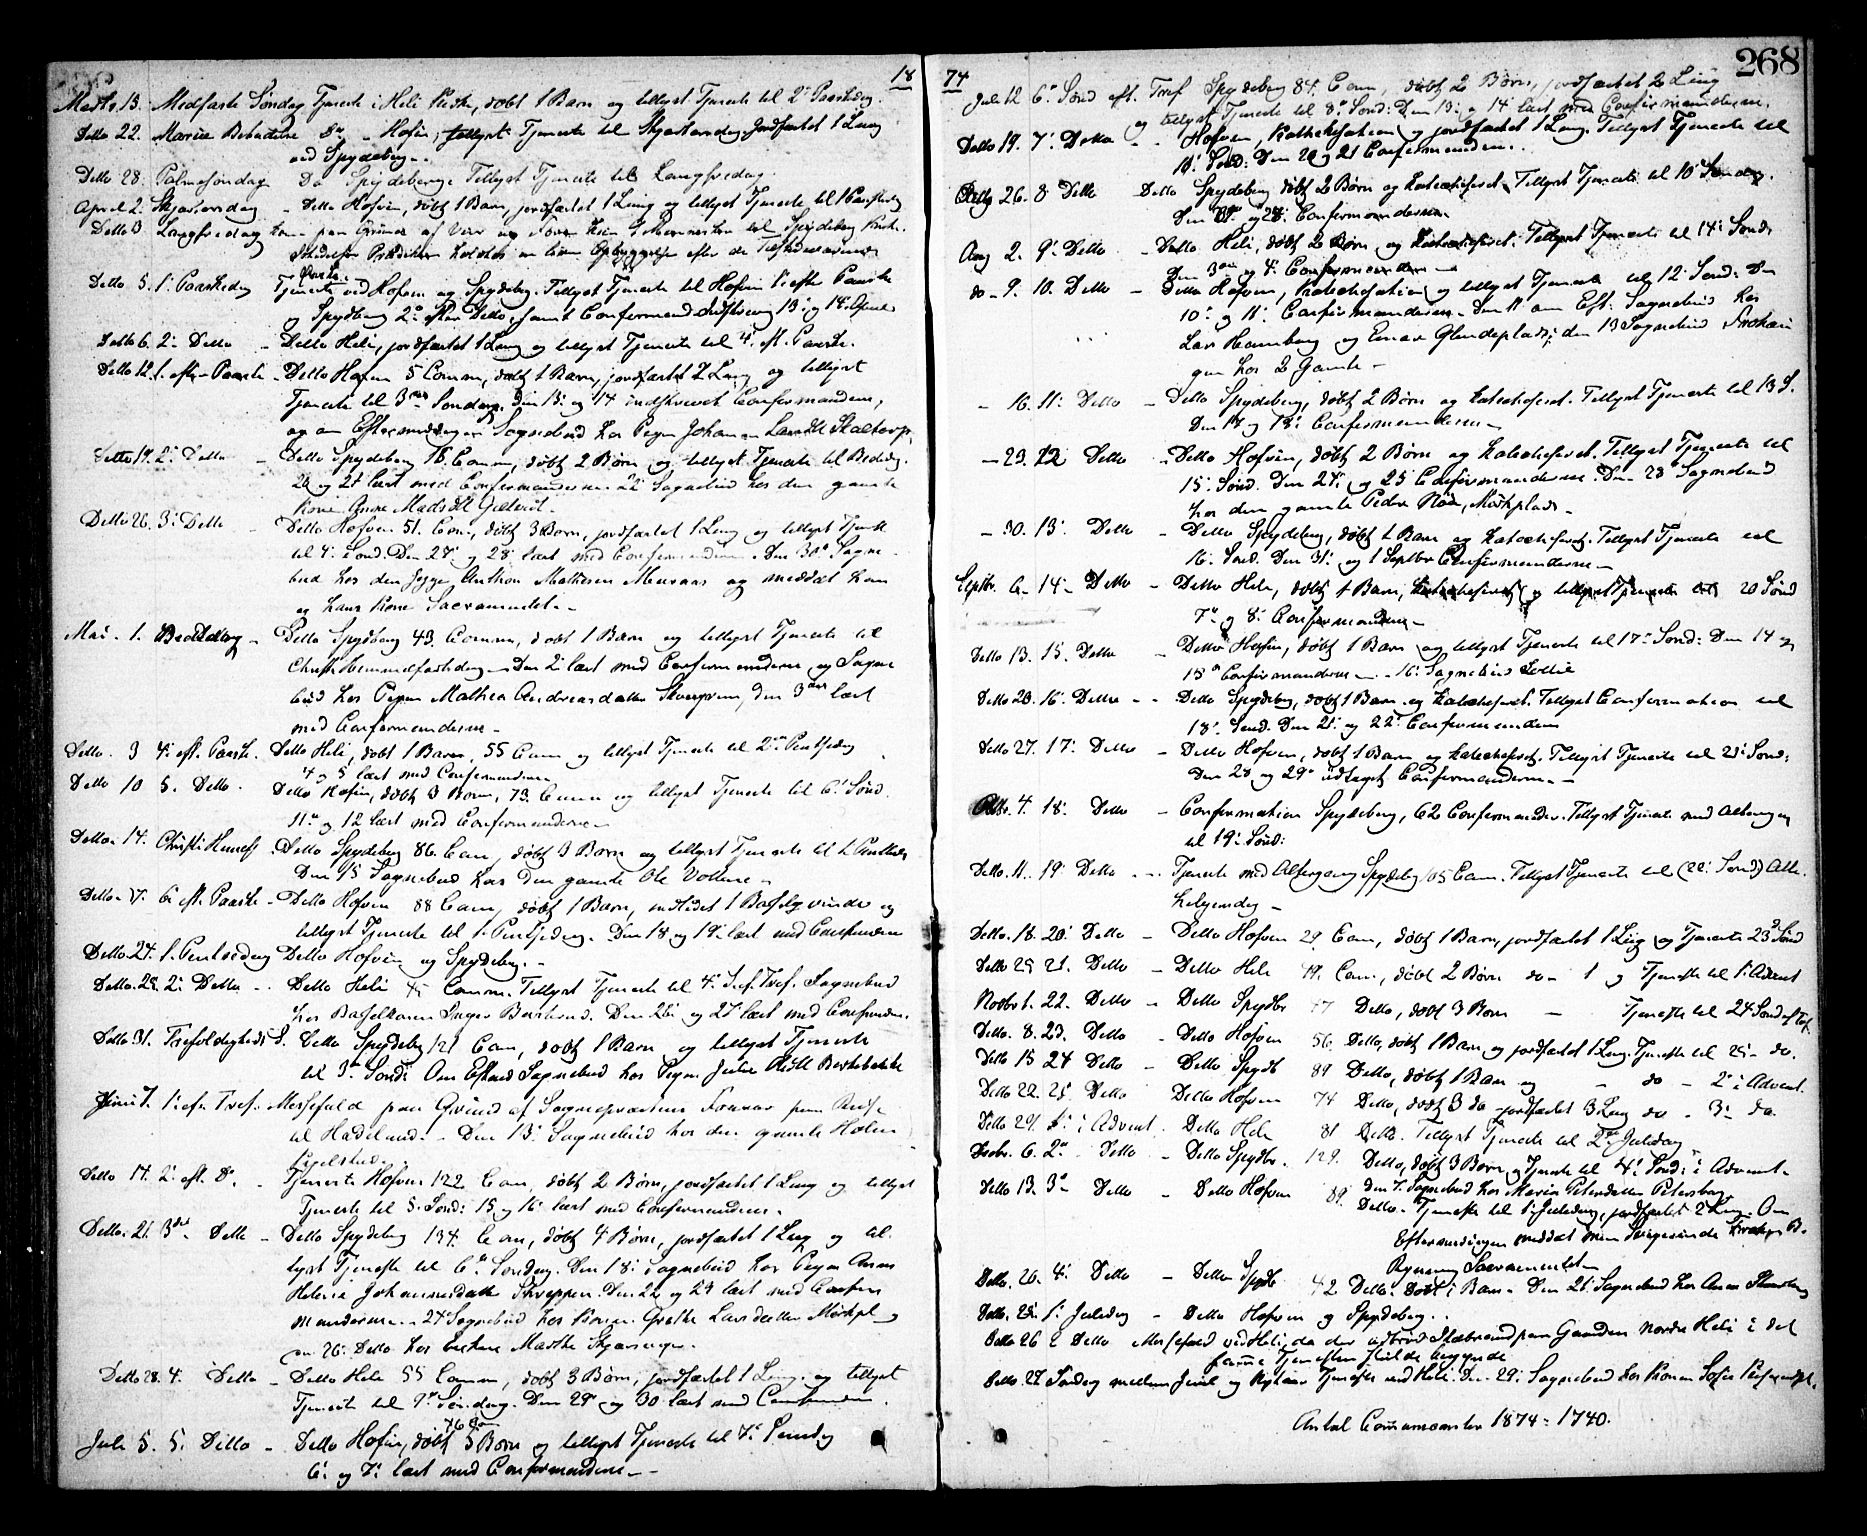 18
Marts 15. Midfaste Söndag Tjeneste i Heli Kirke, döbt 1 Barn og tillyst Tjeneste til 2den Paaskedag.
Detto 22. Mariæ Bebudelse Do - Hofvin, tillyst Tjeneste til Skjærtorsdag, Jordfæstet 1 Liig
ved Spydeberg.
Detto 28. Palmesöndag Do Spydeberg. Tillyst Tjeneste til Langfredag.
April 2. Skjærtorsdag - Detto Hofvin, döbt 1 Barn, jordfæstet 1 Liig og tillyst Tjeneste til 1 Paaskedag
Detto 3 Langfredag kom paa Grund af Veir og Före kun Mennesker til Spydeberg Kirke.
Istedetfor Prædiken holdtes en liden Opbyggelse efter de Tilstedeværende
Detto 5. 1ste Paaskedag Tjeneste ved Hofvin og Spydeberg. Tillyst Tjeneste til Hofvin 1ste efter Paaske
og Spydberg 2den efter Detto, samt Confirmand Indskrivning 13de og 14. April
Detto 6. 2. Detto - Detto Heli, jordfæstet 1 Liig og tillyst Tjeneste til 4. eft. Paaske.
Detto 12. 1. efter Paaske - Detto Hofvin 5 Comm, döbt 1 Barn, jordfæstet 2 Liig og tillyst
Tjeneste til 3die Söndag. Den 13. og 14 indskrevet Confirmanderne,
og om Eftermiddagen Sognebud hos Pigen Johanne Larsdt Skaltorp.
Detto 19. 2. Detto - Detto Spydeberg 18. Comm, döbt 2 Börn og tillyst Tjeneste til Bededag.
20 og 21 læst med Confirmanderne. 22. Sognebud hos den gamle
Kone Anne Madsdt
Detto 26. 3. Detto - Detto Hofvin 51. Com, döbt 3 Born, jordfæstet 1 Liig og tillyst Tjeneste
til 7. Sond. Den 27. og 28. læst med Confirmanderne. Den 30. Sogne-
bud hos den syge Anthon Mathisen og meddelt ham
og hans Kone Sacramentet.
Mai. 1. Bededag - Detto Spydberg 43. Comm, dobt 1 Barn og tillyst Tjeneste til
Christi Himmelfartsdag. Den 2. læst med Confirmanderne og Sogne
bud hos Pigen Mathea Andreasdatter, den 3die læst
med Confirmanderne.
Detto. 3 4. eft. Paaske. Detto Heli, dobt 1 Barn, 55 Com og tillyst Tjeneste til 2den Pintsedag
4 og 5 læst med Confirmanderne
Detto 10 5. Detto. Detto Hofvin, döbt 3 Born, 73. Comm og tillyst Tjeneste til 6. Sönd.
11. og 12 læst med Confirmanderne
Detto. 14. Christi Himmelf. Detto Spydeberg 86. Com, döbt 3 Born og tillyst Tjeneste til 1 Pintsedag
Den 15 Sognebud hos den gamle Ole Vollene
Detto. 17. 6. eft. Paaske - Detto Hofvin 88 Com, döbt 1 Barn, indledet 1 Barselqvinde og
tillyst Tjeneste til 1. Pintsedag. Den 18 og 19. læst med Confirmanderne
Detto. 24. 1. Pintsedag Detto Hofvin og Spydeberg.
Detto. 25. 2. Detto - Detto Heli 45 Comm. Tillyst Tjeneste til 4. S. ef. Tref. Sognebud
hos Barselkonen Inger. Den 26. og 27 læst med Confirmanderne.
Detto 31. Trefoldigheds S. Detto Spydeberg 121 Com, dobt 1 Barn og tillyst Tjeneste
til 3. Sond: Om Efterm Sognebud hos Pigen Julie
Juni 7. 1. ef. Tref. Messefald paa Grund af Sognepræstens Fravær paa Reise
til Hadeland. Den 13. Sognebud hos den gamle Halvor
Detto 14. 2. eft. Do. Tjeneste Hofvin 122 Com, döbt 2 Börn, jordfæstet 1 Liig og tillyst
Tjeneste til 5. Sond: 15 og 16. læst med Confirmanderne.
Detto. 21. 3die Detto - Detto Spydeberg 134. Com, döbt 4 Börn, jordfæstet 1 Liig og til-
lyst Tjeneste til 6te Söndag. Den 18. Sognebud hos Pigen Anne
Helene Johannesdatter. Den 22 og 23 læst med Confir
manderne. 24 Sognebud hos Konen Grethe Larsdatter Mörkpl.
26. Detto hos Enken Marthe.
Detto 28. 4. Detto - Detto Heli 55 Comm, döbt 3 Börn, jordfæstet 1 Liig og tillyst
Tjeneste til 9de Söndag. Den 29 og 30 læst med Confirmanderne.
Juli 5. 5. Detto - Detto Hofvin, döbt 5 Born og tillyst Tjeneste til 7. Sondag
76 Com
6. og 7. læst med Confirmanderne
74
268
Juli 12 6te Sönd eft. Tref Spydeberg 84. Com, döbt 2 Börn, jordfæstet 2 Liig
og tillyst Tjeneste til 8de Sönd: Den 13. og 14 læst med Confirmanderne.
Detto 19. 7. Detto - Hofvin, Kathekisation og jordfæstet 1 Liig. Tillyst Tjeneste til
11. Sönd: Den 20 og 21 Confirmanderne.
Detto 26. 8 Detto Detto Spydeberg döbt 2 Börn og katekiseret. Tillyst Tjeneste til 10. Sondag.
Den og 28. Confirmanderne
Aug 2. 9. Detto - Detto Heli, döbt 2 Börn og katekiseret. Tillyst Tjeneste til 14. Sönd:
Den 3die og 4. Confirmanderne
do - 9. 10. Detto - Detto Hofvin, Katekisation og tillyst Tjeneste til 12. Sond: Den
10. og 11. Confirmanderne. Den 11 om Eft. Sognebud hos
Lars Hamborg og Einar; den 13 Sognebud
hos 2 Gamle
- 16. 11. Detto - Detto Spydeberg, döbt 2 Börn og katekiseret. Tillyst Tjeneste til 13 S.
Den 17 og 18. Confirmanderne
- 23. 12 Detto - Detto Hofvin, döbt 2 Börn og katekiseret. Tillyst Tjeneste til
15. Sönd. Den 24. og 25 Confirmanderne. Den 28 Sognebud
hos den gamle Peder, Mörkplads.
- 30. 13. Detto - Detto Spydeberg, döbt 1 Barn og katekiseret. Tillyst Tjeneste til
16. Sond. Den 31. og 1 Septbr Confirmanderne
Septbr. 6. 14. Detto - Detto Heli, döbt 1 Barn, katekiseret og tillyst Tjeneste til 20 Sönd
7de og 8. Confirmanderne
Detto 13. 15. Detto - Detto Hofvin, döbt 1 Barn og tillyst Tjeneste til 17. Sond: Den 14 og
15de Confirmanderne. 16. Sognebud
Detto 20. 16. Detto - Detto Spydeberg, döbt 1 Barn og katekiseret. Tillyst Confirmation til
18. Sond. Den 21. og 22. Confirmanderne
Detto 27. 17. Detto - Detto Hofvin, dobt 1 Barn og katekiseret. Tillyst Tjeneste til 21. Sönd:
Den 28 og 29. udtaget Confirmanderne.
Octbr. 4. 18. Detto - Confirmation Spydeberg, 62 Confirmander. Tillyst Tjeneste med Altergang
til 19. Sönd:
Detto. 11. 19. Detto - Tjeneste med Altergang Spydeberg 105 Com. Tillyst Tjeneste til (22. Sönd) Alle-
helgensdag
Detto. 18. 20. Detto - Detto Hofvin 29. Com, döbt 1 Barn, jordfæstet 1 Liig og Tjeneste 23. Sönd
Detto 25 21. Detto - Detto Heli 49. Com, döbt 2 Börn do - 1 og Tjeneste til 1. Advent
Novbr 1. 22. Detto - Detto Spydbr 47 Detto, döbt 3 Born - Tjeneste til 24 Sönd ef Tref.
Detto. 8. 23. Detto - Detto Hofvin 56. Detto, döbt 1 Barn og jordfæstet 1 Liig. Tjeneste til 25 - do.
Detto 15 24 Detto - Detto Spydb 89 Detto, döbt 1 Barn og - do - 2. i Advent.
Detto 22. 25 Detto Detto Hofvin 74 Detto, döbt 3 do jordfæstet 3 Liig do - 3. do.
Detto 29. 1. i Advent. Detto Heli 81 Detto. Tillyst Tjeneste til 2den Juledag
Decbr. 6. 2den - Detto - Detto Spydbr. 129. Detto, döbt 3 Börn og Tjeneste til 4. Sönd: i Advent.
Den 7. Sognebud hos Maria Petersdatter Petersborg
Detto 13. 3die Detto - Detto Hofvin 89. Detto. Tjeneste til 1. Juledag, jordfæstet 2 Liig. Om
Eftermiddagen meddelt min Svigerinde B.
Sacramentet
Detto. 20. 4. Detto - Detto Spydb 42 Detto. Döbt 1 Barn. Den 21. Sognebud hos Anne
Detto. 25. 1. Juledag - Detto Hofvin og Spydeberg.
Detto 26 2 Detto Messefald ved Heli, da der udbröd Ildebrand paa Gaarden nordre Heli i det
samme Tjenesten skulde begynde
Detto. 27 Söndag mellem Juul og Nytaar Tjeneste ved Heli. Den 29. Sognebud hos Konen Sofie
Antal Communicanter 1874 = 1740.